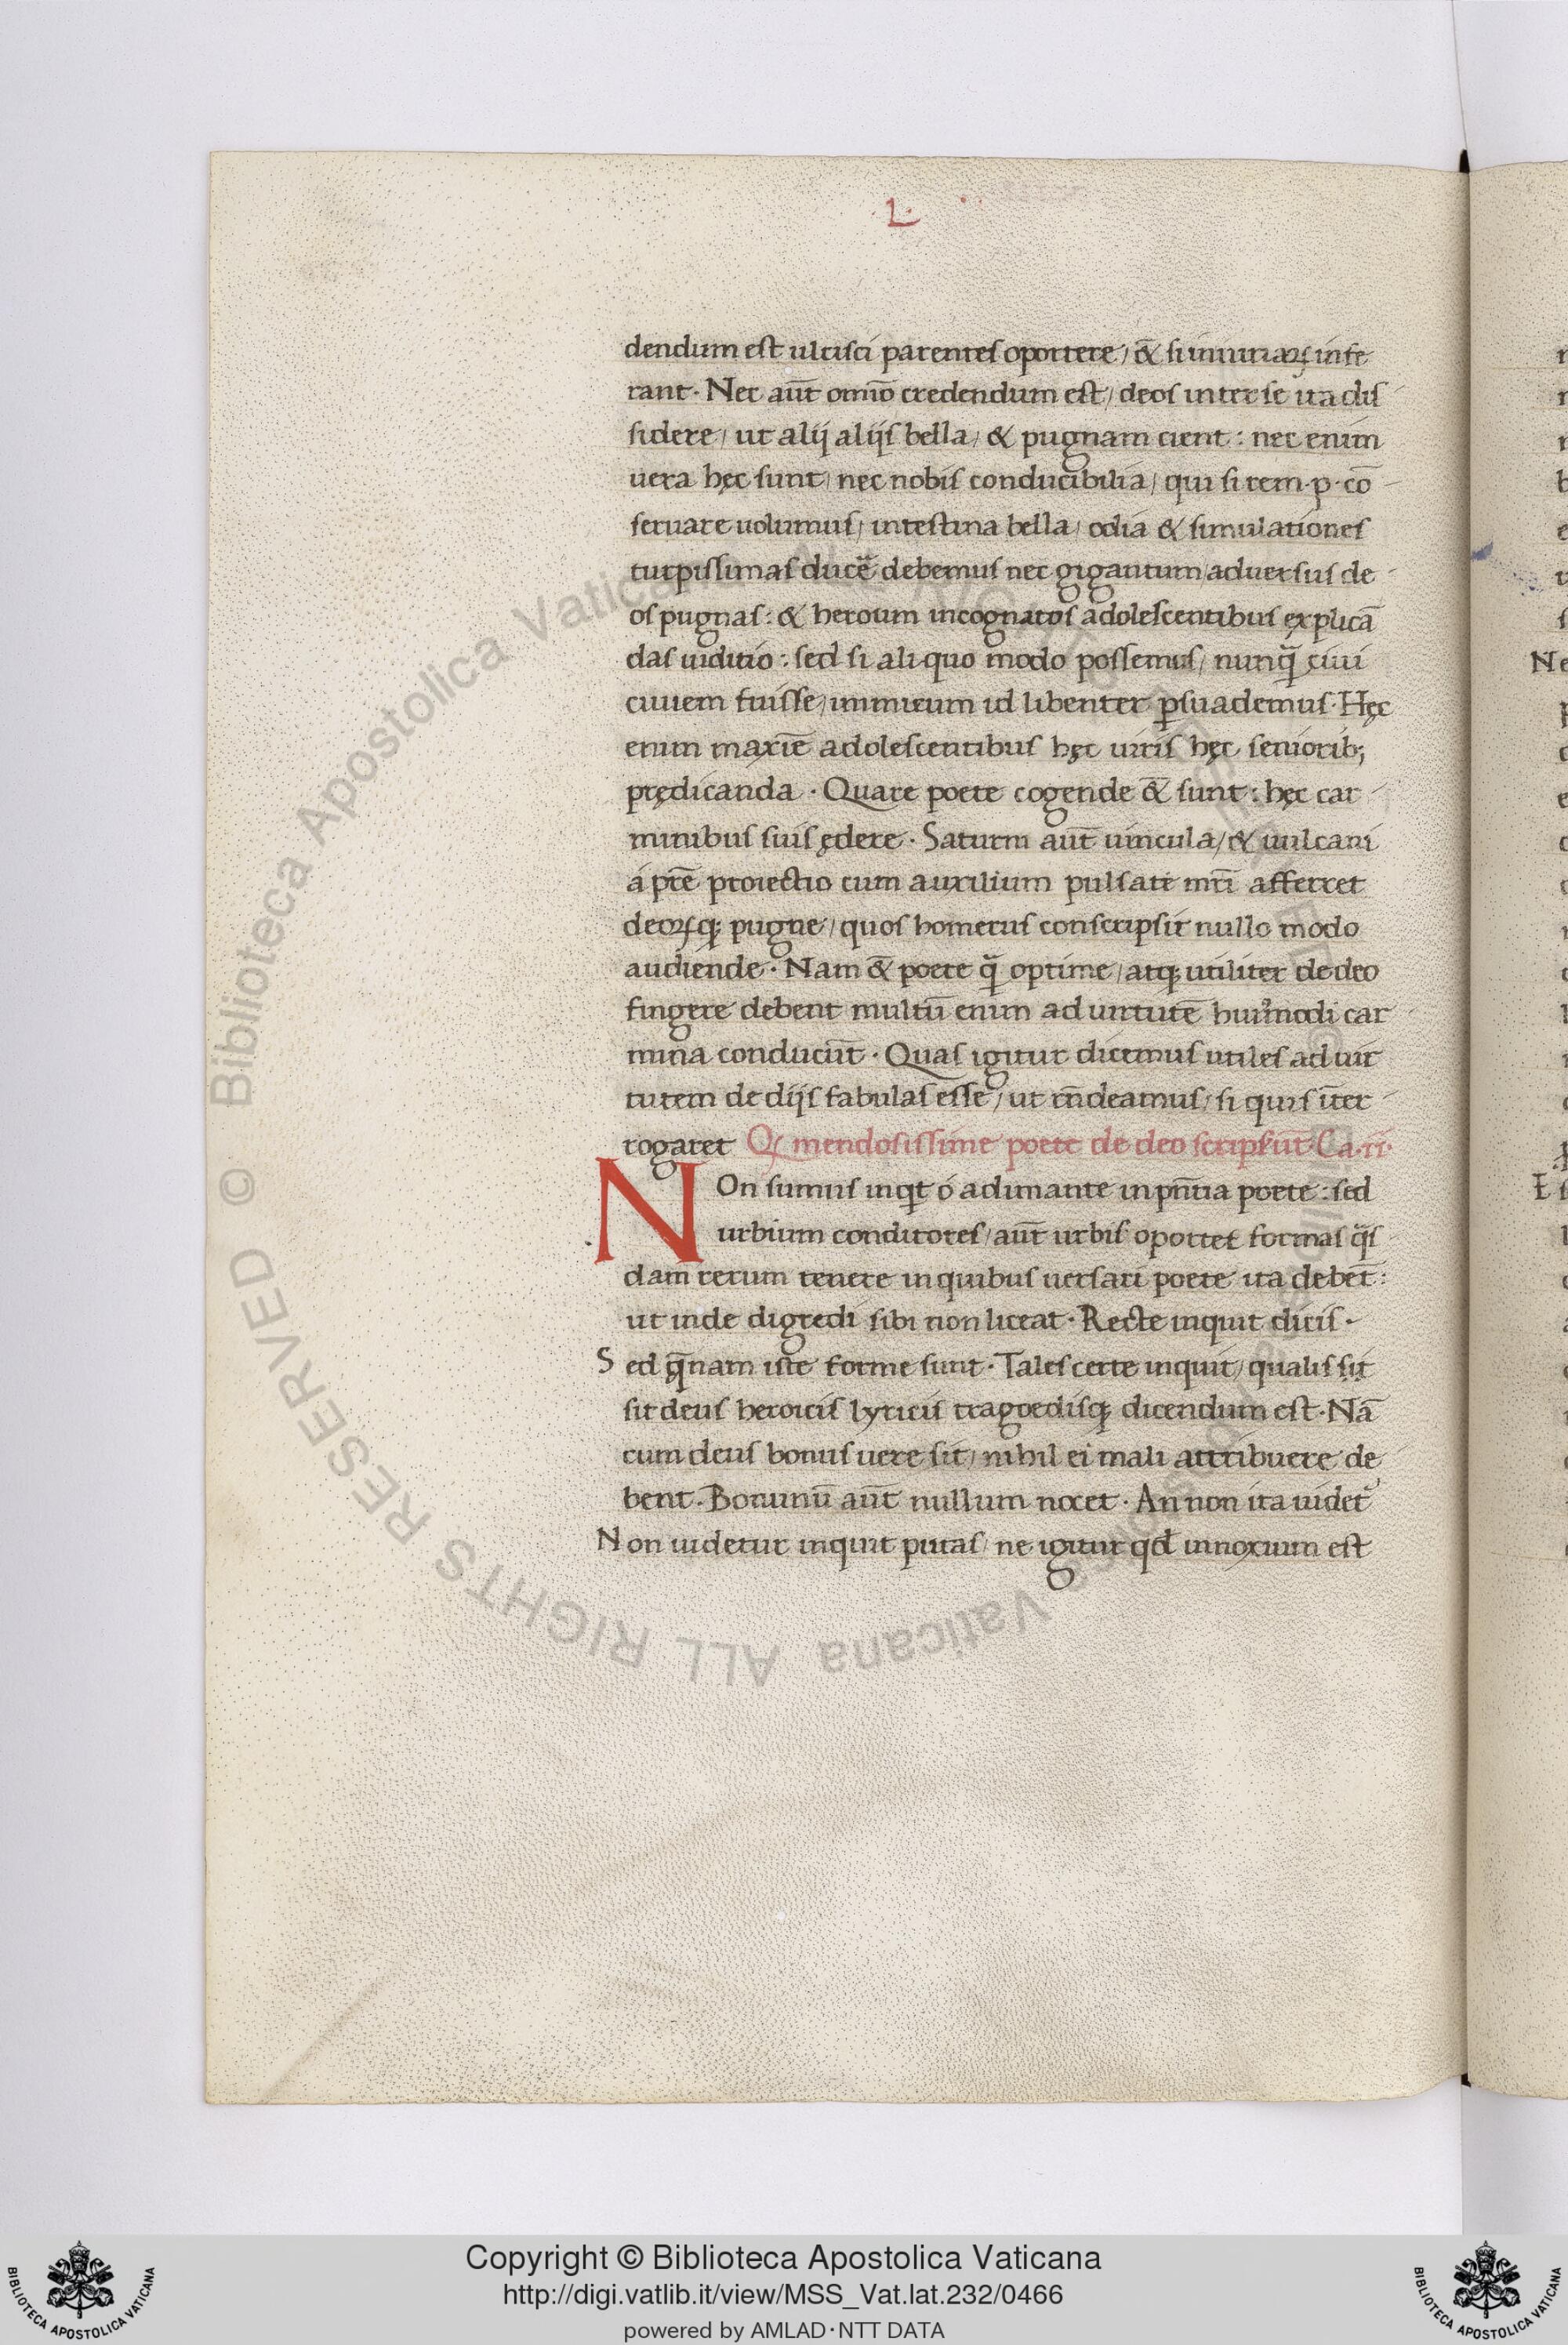 L·
dendum est ulcisci parentes oportere / &̄ si iniuriaꝝ infe
rant · Nec aūt om̄io credendum est / deos inter se ita dis
sidere / ut alij alijs bella / & pugnam cient : nec enim
uera hęc sunt / nec nobis conducibilia / qui si rem · p · cō
seruare uolumus / intestina bella / odia & simulationes
turpissimas ducē debemus nec gigantum / aduersus de
os pugnas : & heroum incognatos adolescentibus explicā
das uiditio : sed si aliquo modo possemus / nunq̄ ciui
ciuem fuisse / inimicum id libenter ꝑsuademus · Hęc
enim maxīe adolescentibus hęc uiris hęc seniorib;
prędicanda · Quare poete cogende &̄ sunt : hęc car
minibus suis ędere · Saturni aūt uincula / & uulcani
á pr̄e proiectio cum auxilium pulsate mr̄i afferret
deoꝝq; pugne / quos homerus conscripsit nullo modo
audiende · Nam &̄ poete q̄ optime / atq; utiliter de deo
fingere debent multū enim ad uirtutē huiꝰmodi car
mina conducūt · Quas igitur dicemus utiles ad uir
tutem de dijs fabulas esse / ut rn̄deamus / si quis īter
rogaret Qꝫ mendosissime poete de deo scripsūt · Ca · ii ·
NOn sumus inq̇t ó adimante in pn̄tia poete : sed
urbium conditores / aūt urbis oportet formas q̄s
dam rerum tenere in quibus uersari poete ita debēt :
ut inde digredi sibi non liceat · Recte inquit dicis ·
Sed q̄nam iste forme sunt · Tales certe inquit / qualis sit
sit deus heroicis lyricis tragoedisq; dicendum est · Nā
cum deus bonus uere sit / nihil ei mali attribuere de
bent · Bonunū aūt nullum nocet · An non ita uidet᷑
Non uidetur inquit putas / ne igitur qd̄ innoxium est
Biblioteca Apostolica Vaticana ALL RIGHTS RESERVED ©
Copyright © Biblioteca Apostolica Vaticana
http://digi.vatlib.it/view/MSS_Vat.lat.232/0466
powered by AMLAD·NTT DATA
BIBLIOTECA APOSTOLICA VATICANA
BIBLIOTECA APOSTOLICA VATICANA